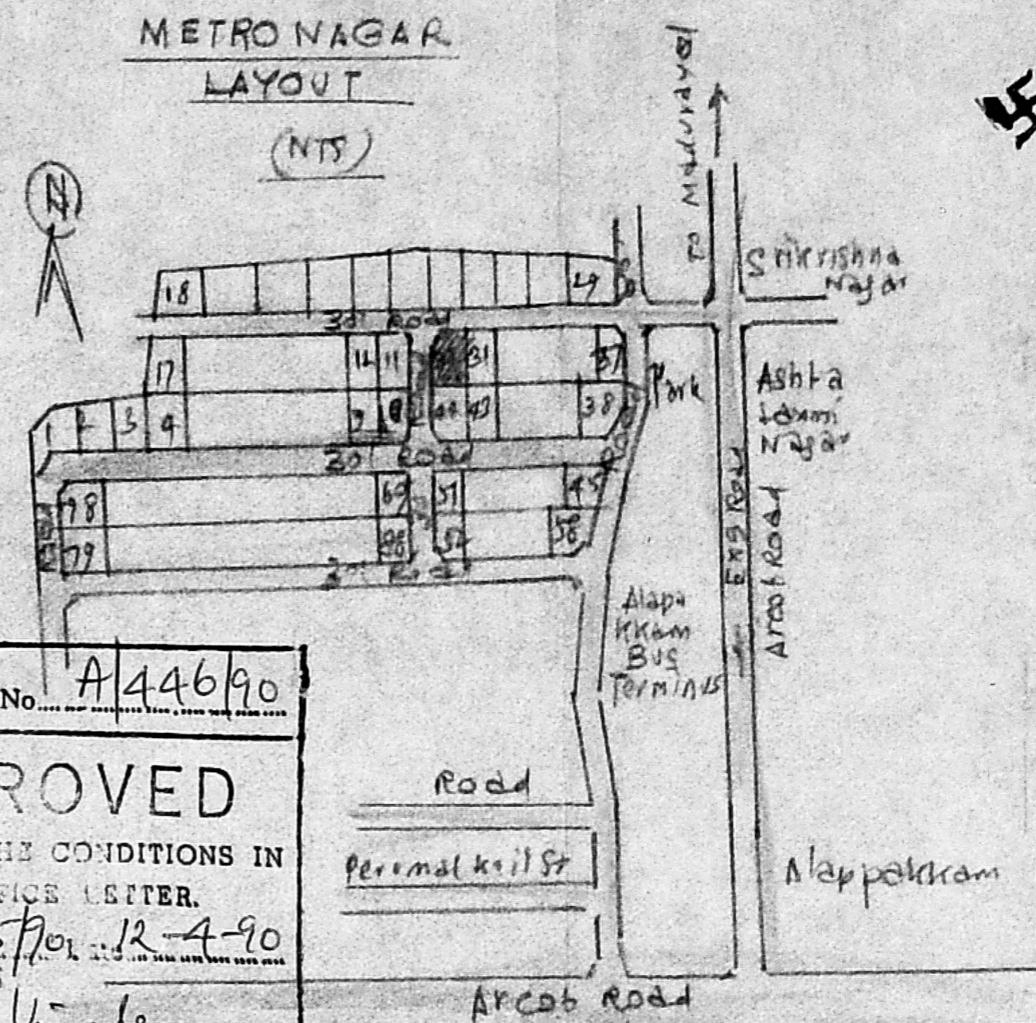 METRO NAGAR
LAYOUT
(NTS)
N
To Maduravoyal
Srikrishna
Nagar
18
29
30' Road
17
12
11
31
37
Park
Ashta
Laxmi
Nagar
1
2
3
4
9
8
44
43
38
Road
30' Road
98
69
51
45
79
52
58
Exg Road
Arcot Road
Alapa
KKam
Bus
Terminus
No. A/446/90
ROVED
HE CONDITIONS IN
FICE LETTER.
12-4-90
Road
Perumal koil St
Alappakkam
Arcot Road